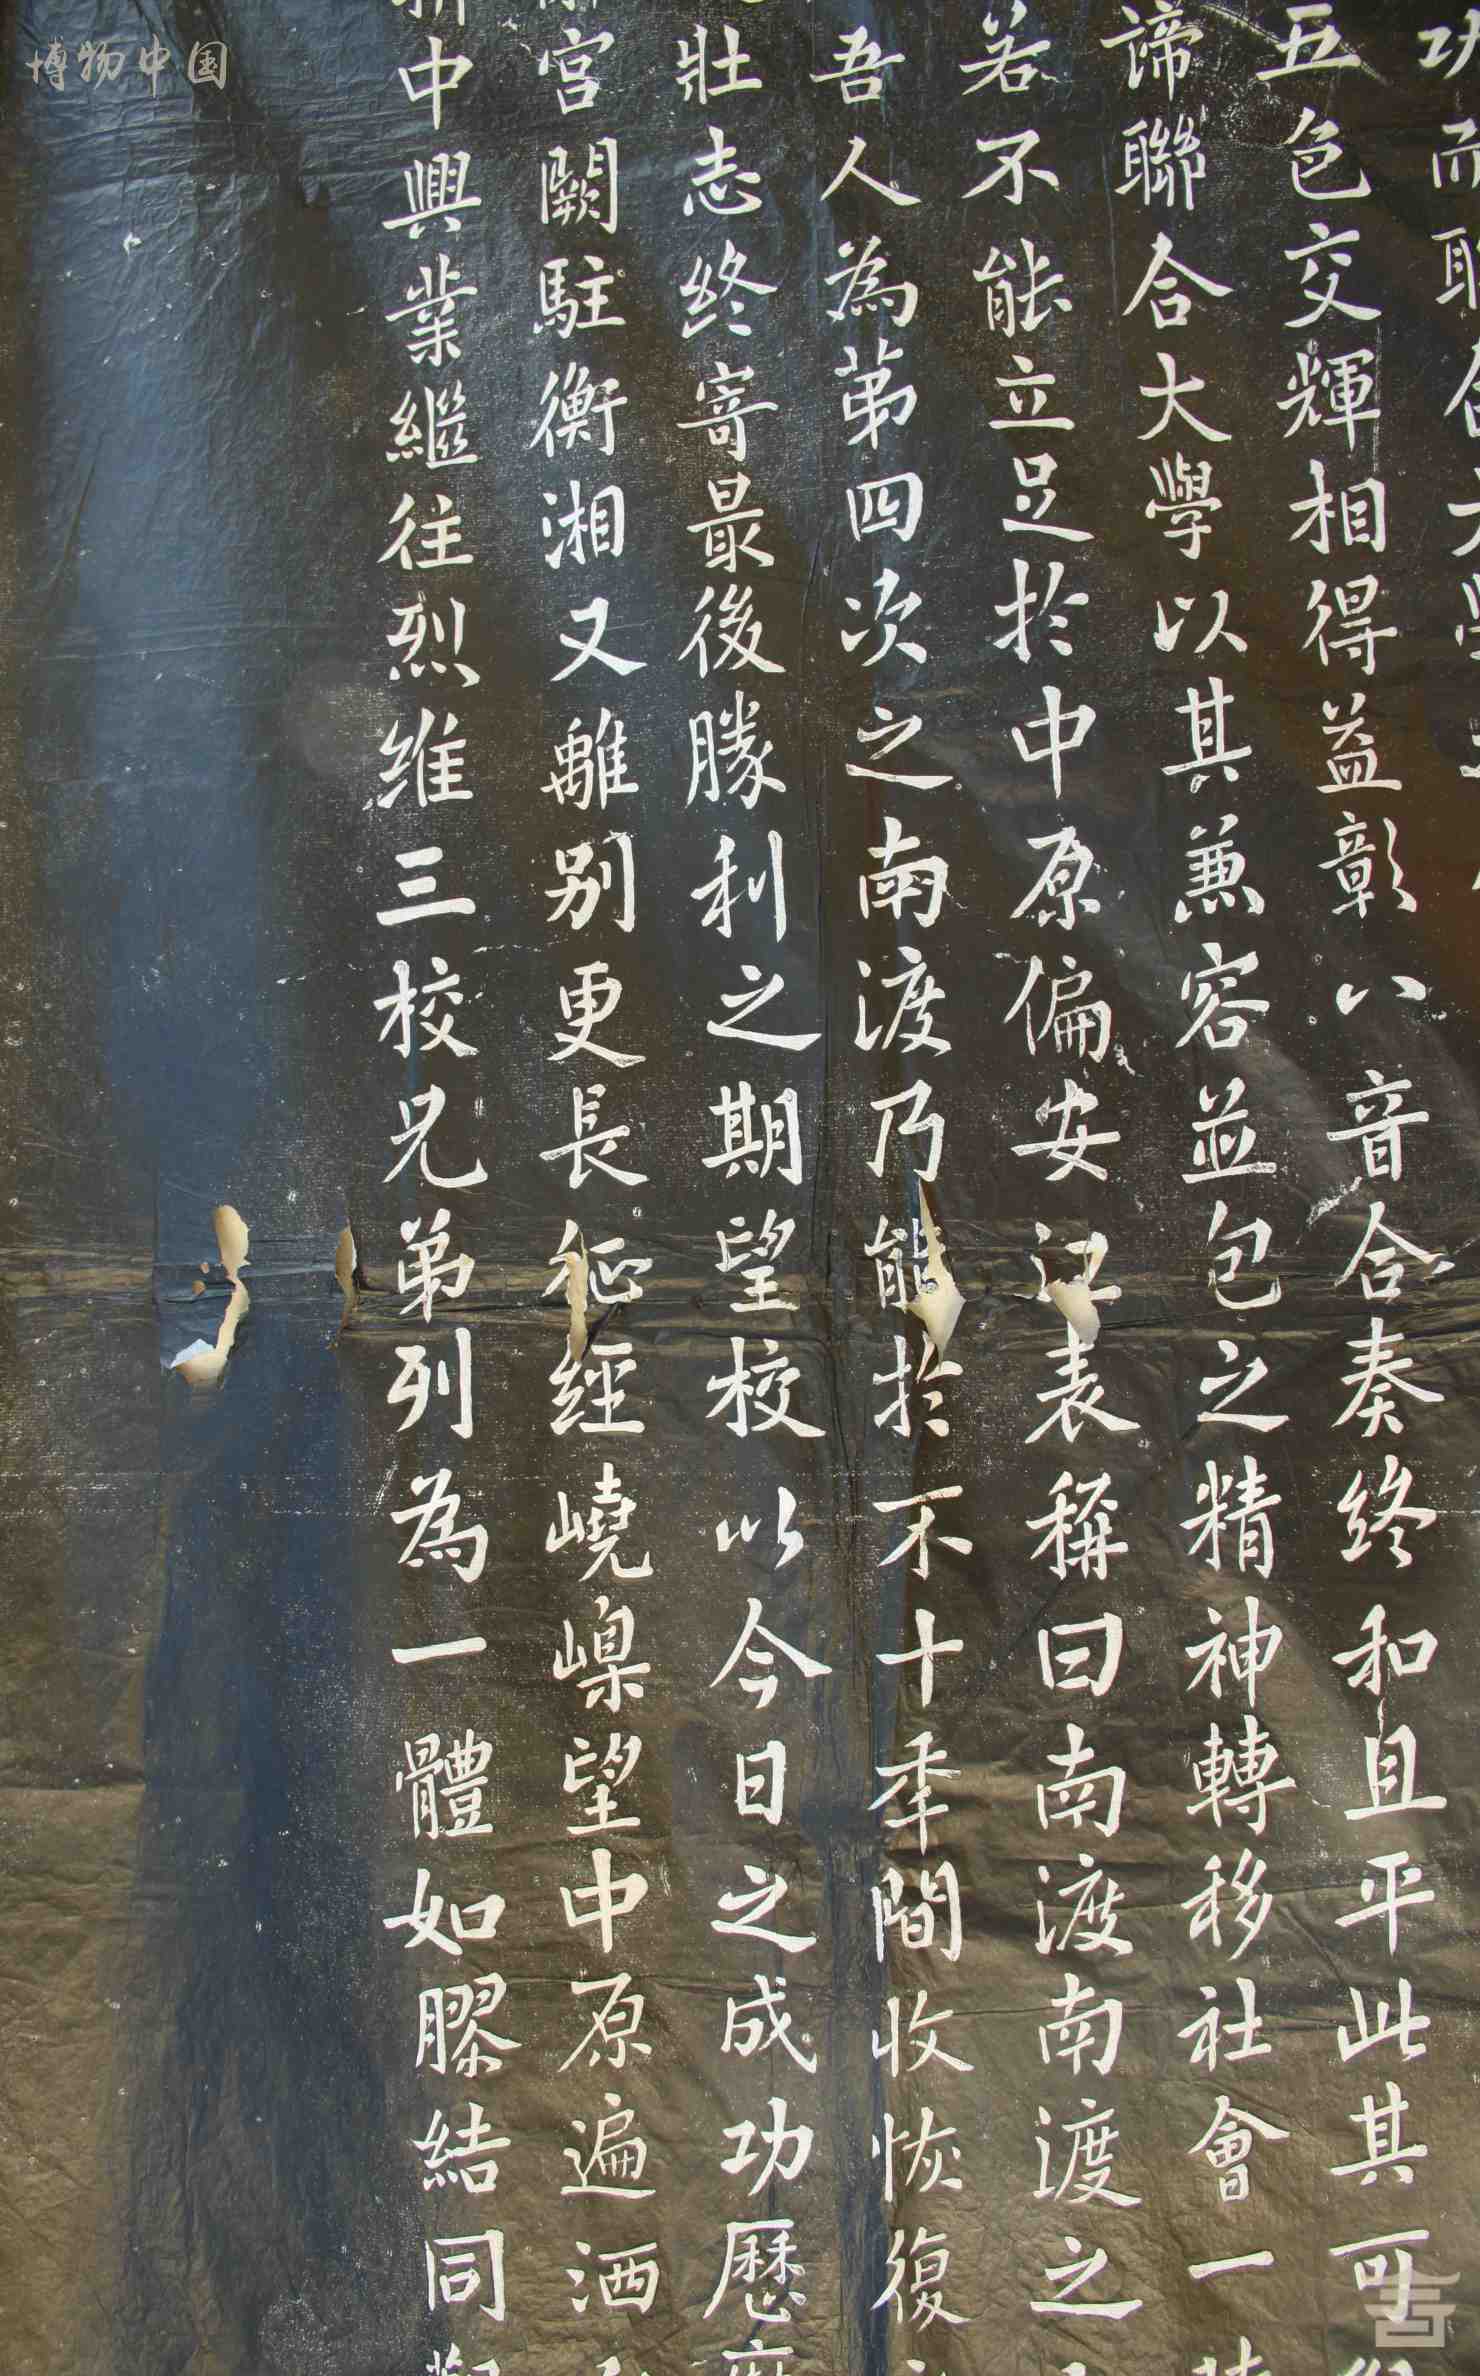 博物中国
功而聯合大學
五色交輝相得益彰八音合奏終和且平此其可
諦聯合大學以其兼容並包之精神轉移社會一
若不能立足於中原偏安江表稱曰南渡南渡之
吾人為第四次之南渡乃能於不十年間收恢復
壯志終寄最後勝利之期望校以今日之成功歷
宮闕駐衡湘又離別更長征經嶢嵲望中原遍洒
中興業繼往烈維三校兄弟列為一體如膠結同